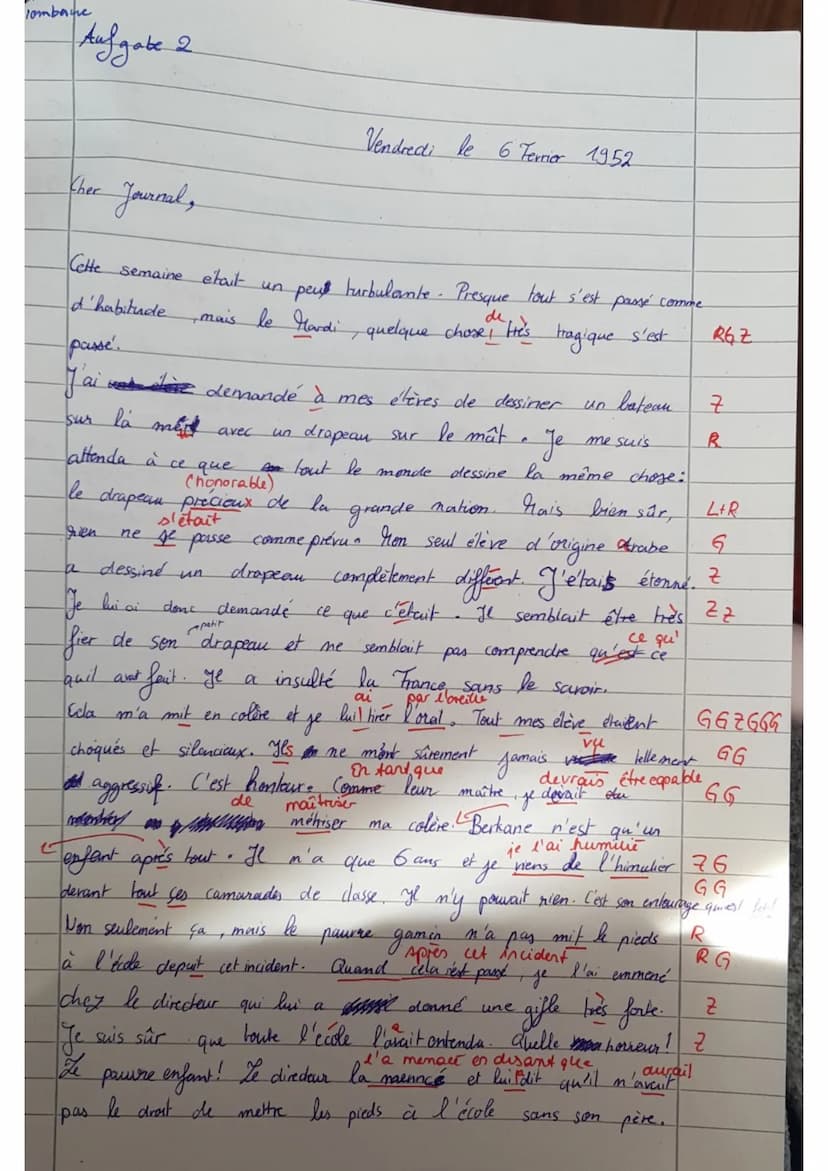 Aufgabe 2
Vendredi le 6 Fevrier 1952
Cher Journal,
Cette semaine etait un peu turbulante. Presque tout s'est passé comme
de
d'habitude, mais le Mardi, quelque chose très tragique s'est RGZ
passé.
J'ai demandé à mes élèves de dessiner un bateau Z
sur la mer avec un drapeau sur le mât. Je me suis R
attenda à ce que tout le monde dessine la même chose:
(honorable)
le drapeau précieux de la grande nation. Mais bien sûr, L+R
s'était
rien ne se passe comme prévu. Mon seul élève d'origine Arabe G
a dessiné un drapeau complètement différent. J'étais étonné. Z
Je lui ai donc demandé ce que c'était. Il semblait être très ZZ
petit ce qu'
fier de son drapeau et ne semblait pas comprendre qu'est ce
quil avait fait. Il a insulté la France sans le savoir.
ai par l'oreille
Cela m'a mit en colère et je lui tirer l'oral. Tout mes élève étaient GGZGGG
vu
choqués et silencieux. Ils ne m'ont sûrement jamais tellement GG
En tant que devrais être capable
aggressif. C'est honteux. Comme leur maître, je devait GG
de maîtriser
métriser ma colère. Berkane n'est qu'un
je l'ai humilié
enfant après tout. Il n'a que 6 ans et je viens de l'himulier ZG
GG
devant tout ses camarades de classe. Il n'y pouvait rien. C'est son entourage
Non seulement ça, mais le pauvre gamin n'a pas mit le pieds R
Après cet incident RG
à l'école depuit cet incident. Quand cela s'est passé, je l'ai emmené
chez le directeur qui lui a donné une gifle très forte. Z
Je suis sûr que toute l'école l'avait entenda. Quelle horreur! Z
l'a menacé en disant que aurait
Le pauvre enfant! Le directeur la menncé et lui dit qu'il n'avait
pas le droit de mettre les pieds à l'école sans son père.